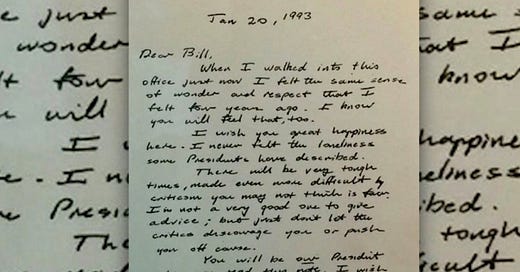 Jan 20, 1993
Dear Bill,
When I walked into this
office just now I felt the same sense
of wonder and respect that I
felt four years ago. I know
you will feel that, too.
I wish you great happiness
here. I never felt the loneliness
some Presidents have described.
There will be very tough
times, made even more difficult by
criticism you may not think is fair.
I'm not a very good one to give
advice; but just don't let the
critics discourage you or push
you off course.
You will be our President
when you read this note. I wish